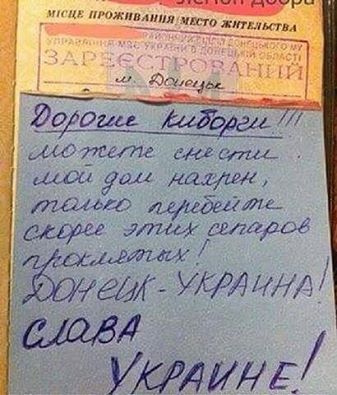 Легіон добра
МІСЦЕ ПРОЖИВАННЯ МЕСТО ЖИТЕЛЬСТВА
УПРАВЛІННЯ МВС УКРАЇНИ В ДОНЕЦЬКІЙ ОБЛАСТІ
ЗАРЕЄСТРОВАНИЙ
м. Донецьк
Дорогие киборги!!!
можете снести
мой дом нахрен,
только перебейте
скорее этих сепаров
проклятых!
ДОНЕЦК - УКРАИНА!
СЛАВА
УКРАИНЕ!